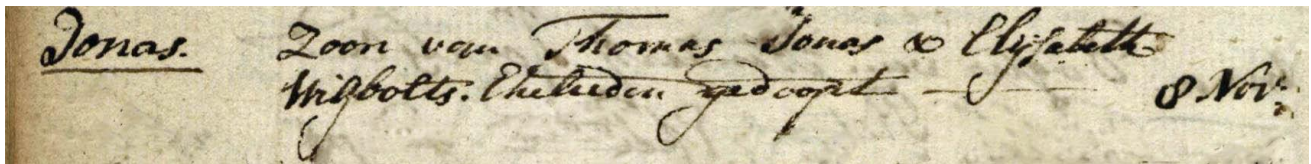 Jonas. Zoon van Thomas Jonas & Elijsabeth
Wigbolts. Ehelieden gedoopt — 8 Nov: